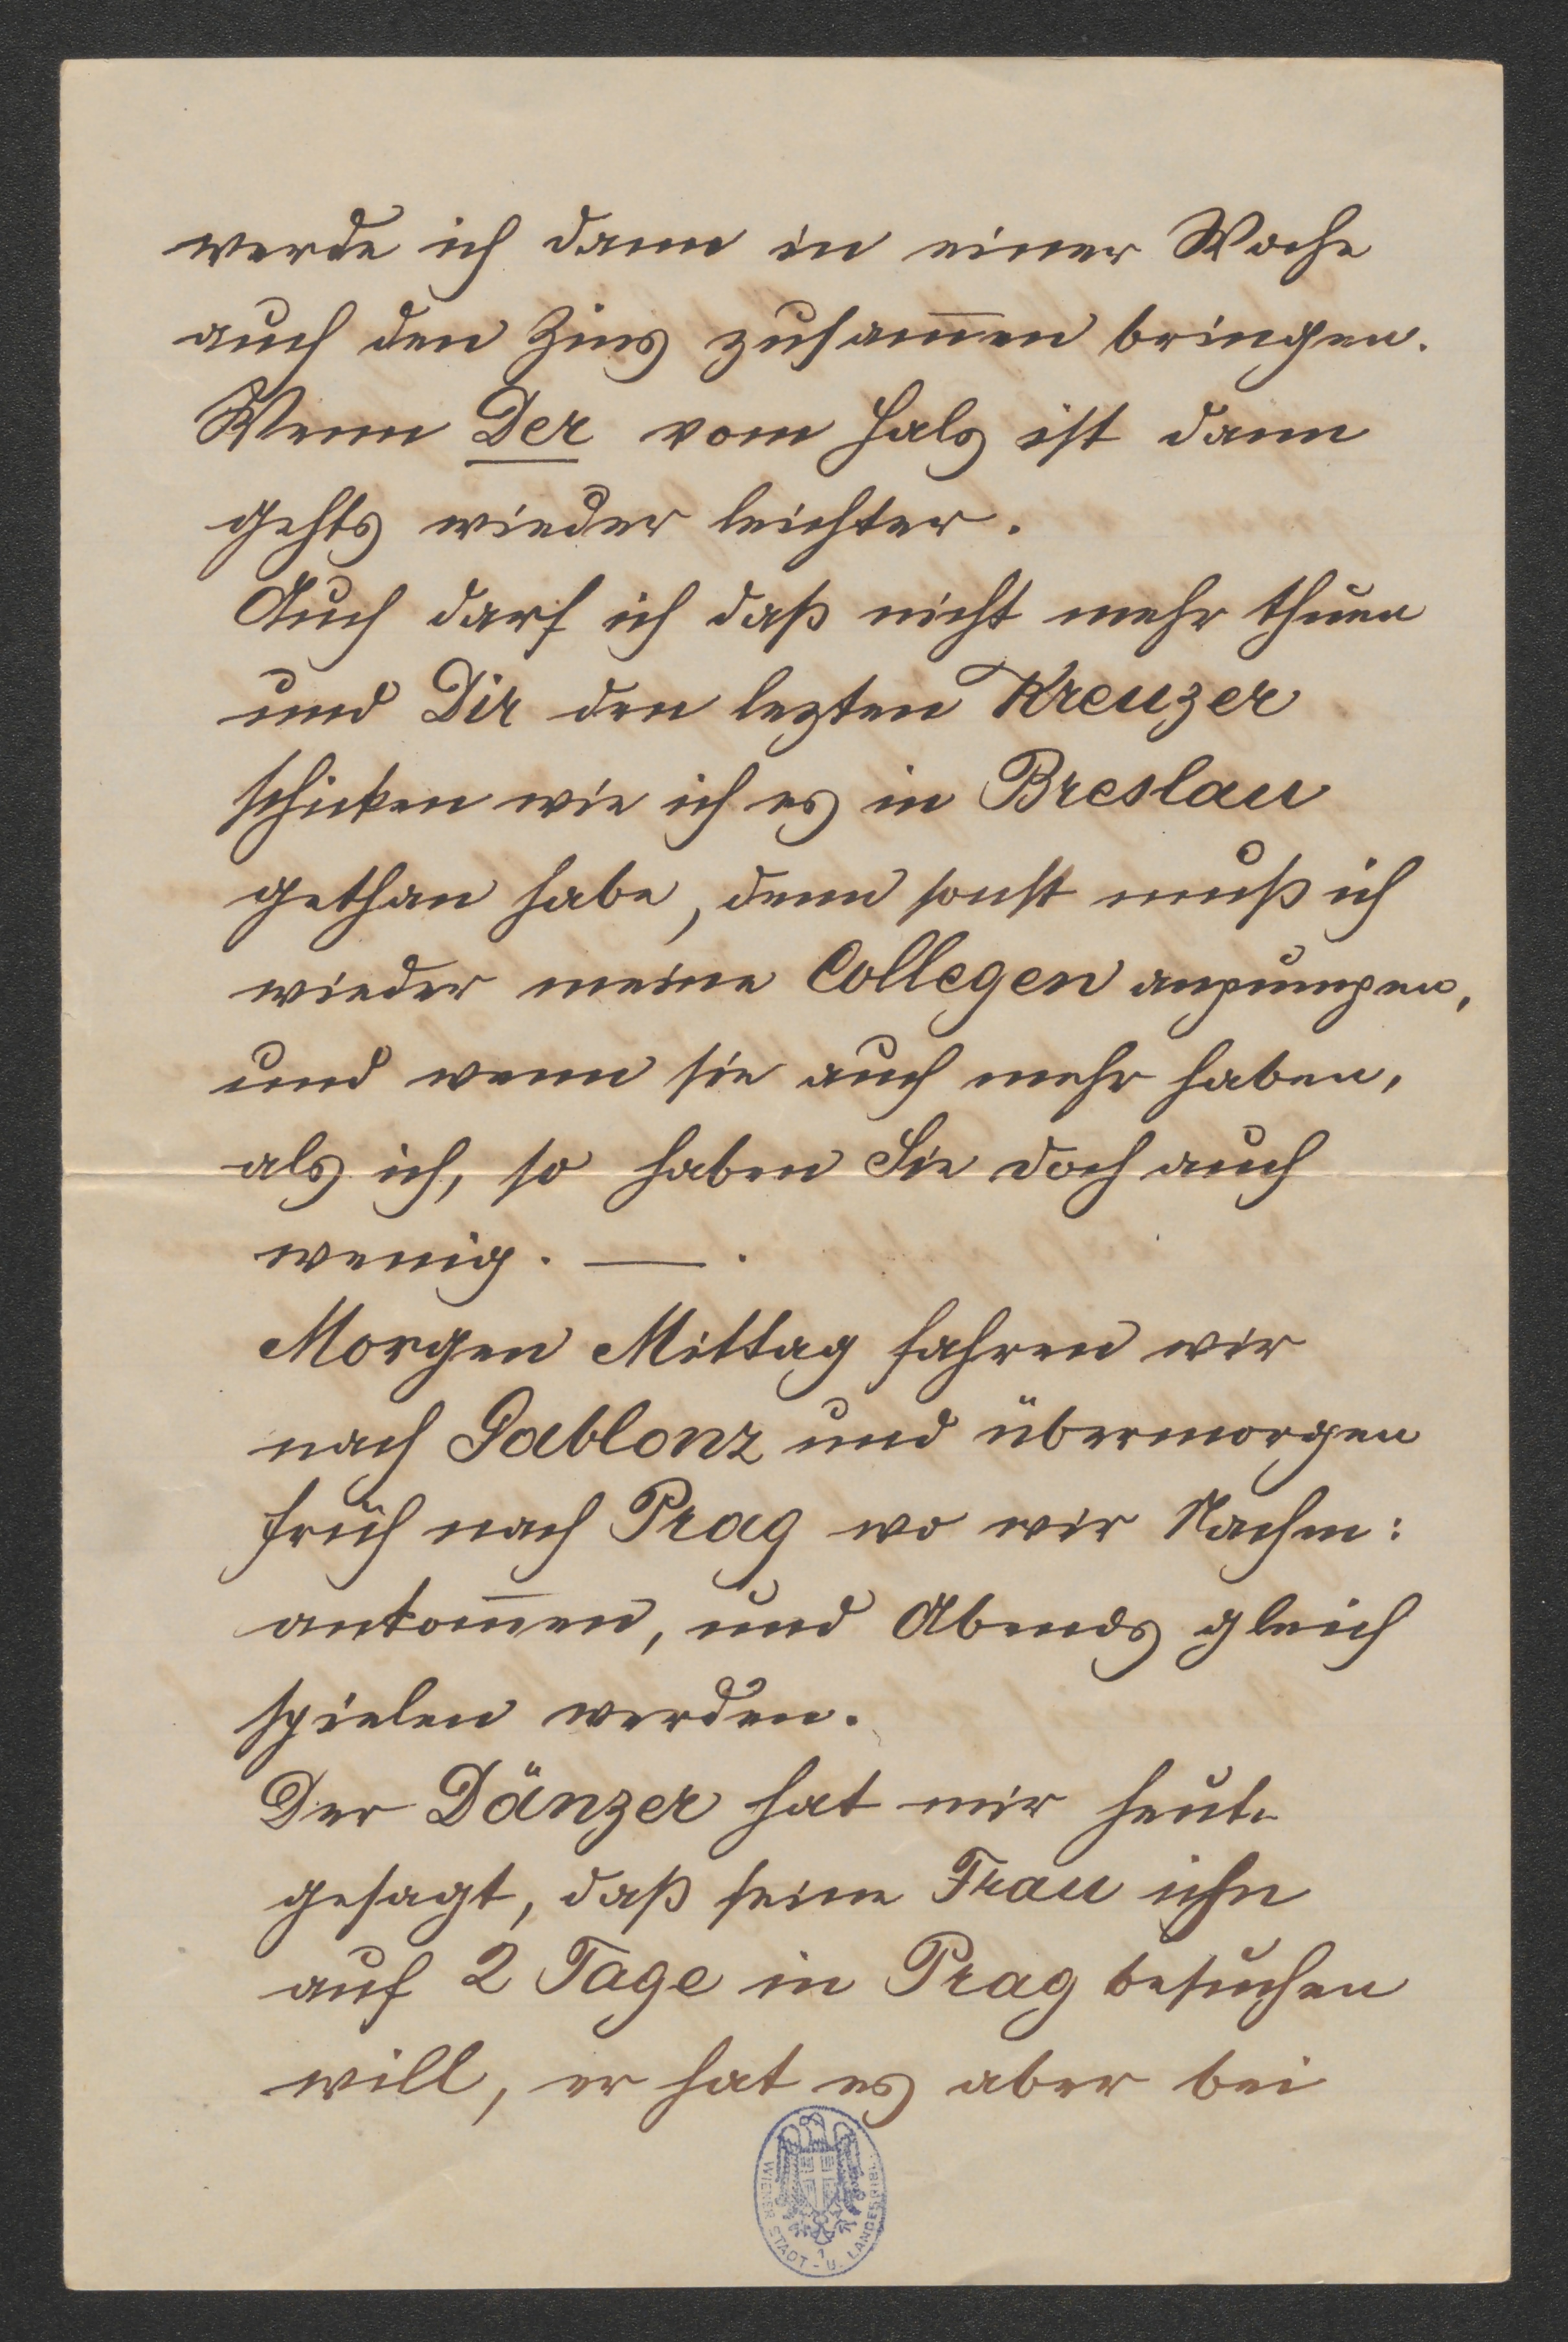 werde ich dann in einer Woche
auch den Zins zusam̅en bringen.
Wenn Der vom Hals ist dann
gehts wieder leichter.
Auch darf ich daß nicht mehr thuen
und Dir den lezten Kreuzer
schicken wie ich es in Breslau
gethan habe, denn sonst muß ich
wieder meine Collegen anpumpen,
und wenn sie auch mehr haben,
als ich, so haben Sie doch auch
wenig. — .
Morgen Mittag fahren wir
nach Gablonz und übermorgen
früh nach Prag wo wir Nachm:
ankom̅en, und Abends gleich
spielen werden.
Der Dänzer hat mir heute
gesagt, daß seine Frau ihn
auf 2 Tage in Prag besuchen
will, er hat es aber bei
WIENER STADT - U. LANDESBIBL.